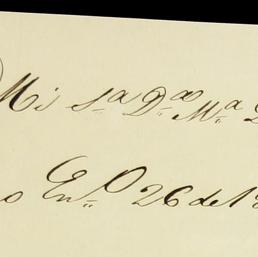 Mi S.ª D.ª M.ª
En.º 26 de 18